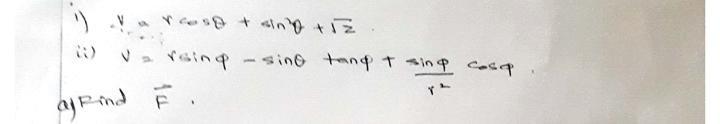 i) V = r cosθ + sin²θ + √2
ii) V = r sinφ - sinθ tanφ + sinφ/r² cosφ.
a) Find F⃗.